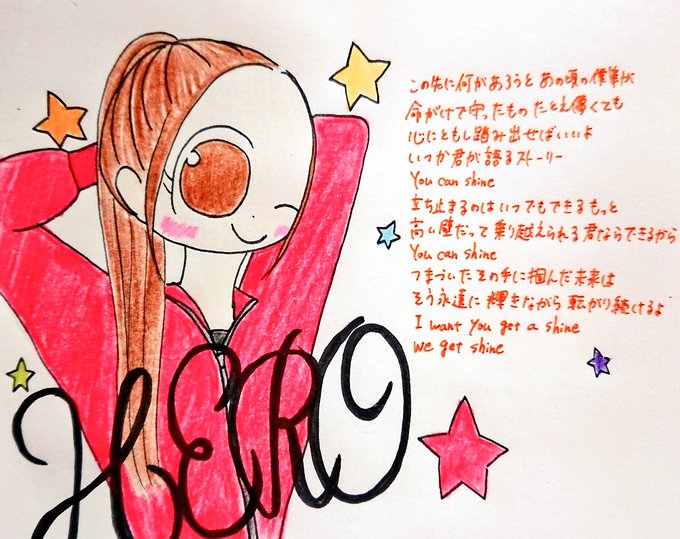 この先に何があろうと あの頃の僕等が
命がけで守ったもの たとえ儚くても
心にともし踏み出せばいいよ
いつか君が語るストーリー
You can shine
立ち止まるのは いつでもできる もっと
高い壁だって 乗り越えられる 君ならできるから
You can shine
つまづいた その手に掴んだ未来は
そう永遠に 輝きながら 転がり続けるよ
I want you get a shine
we get shine
HERO